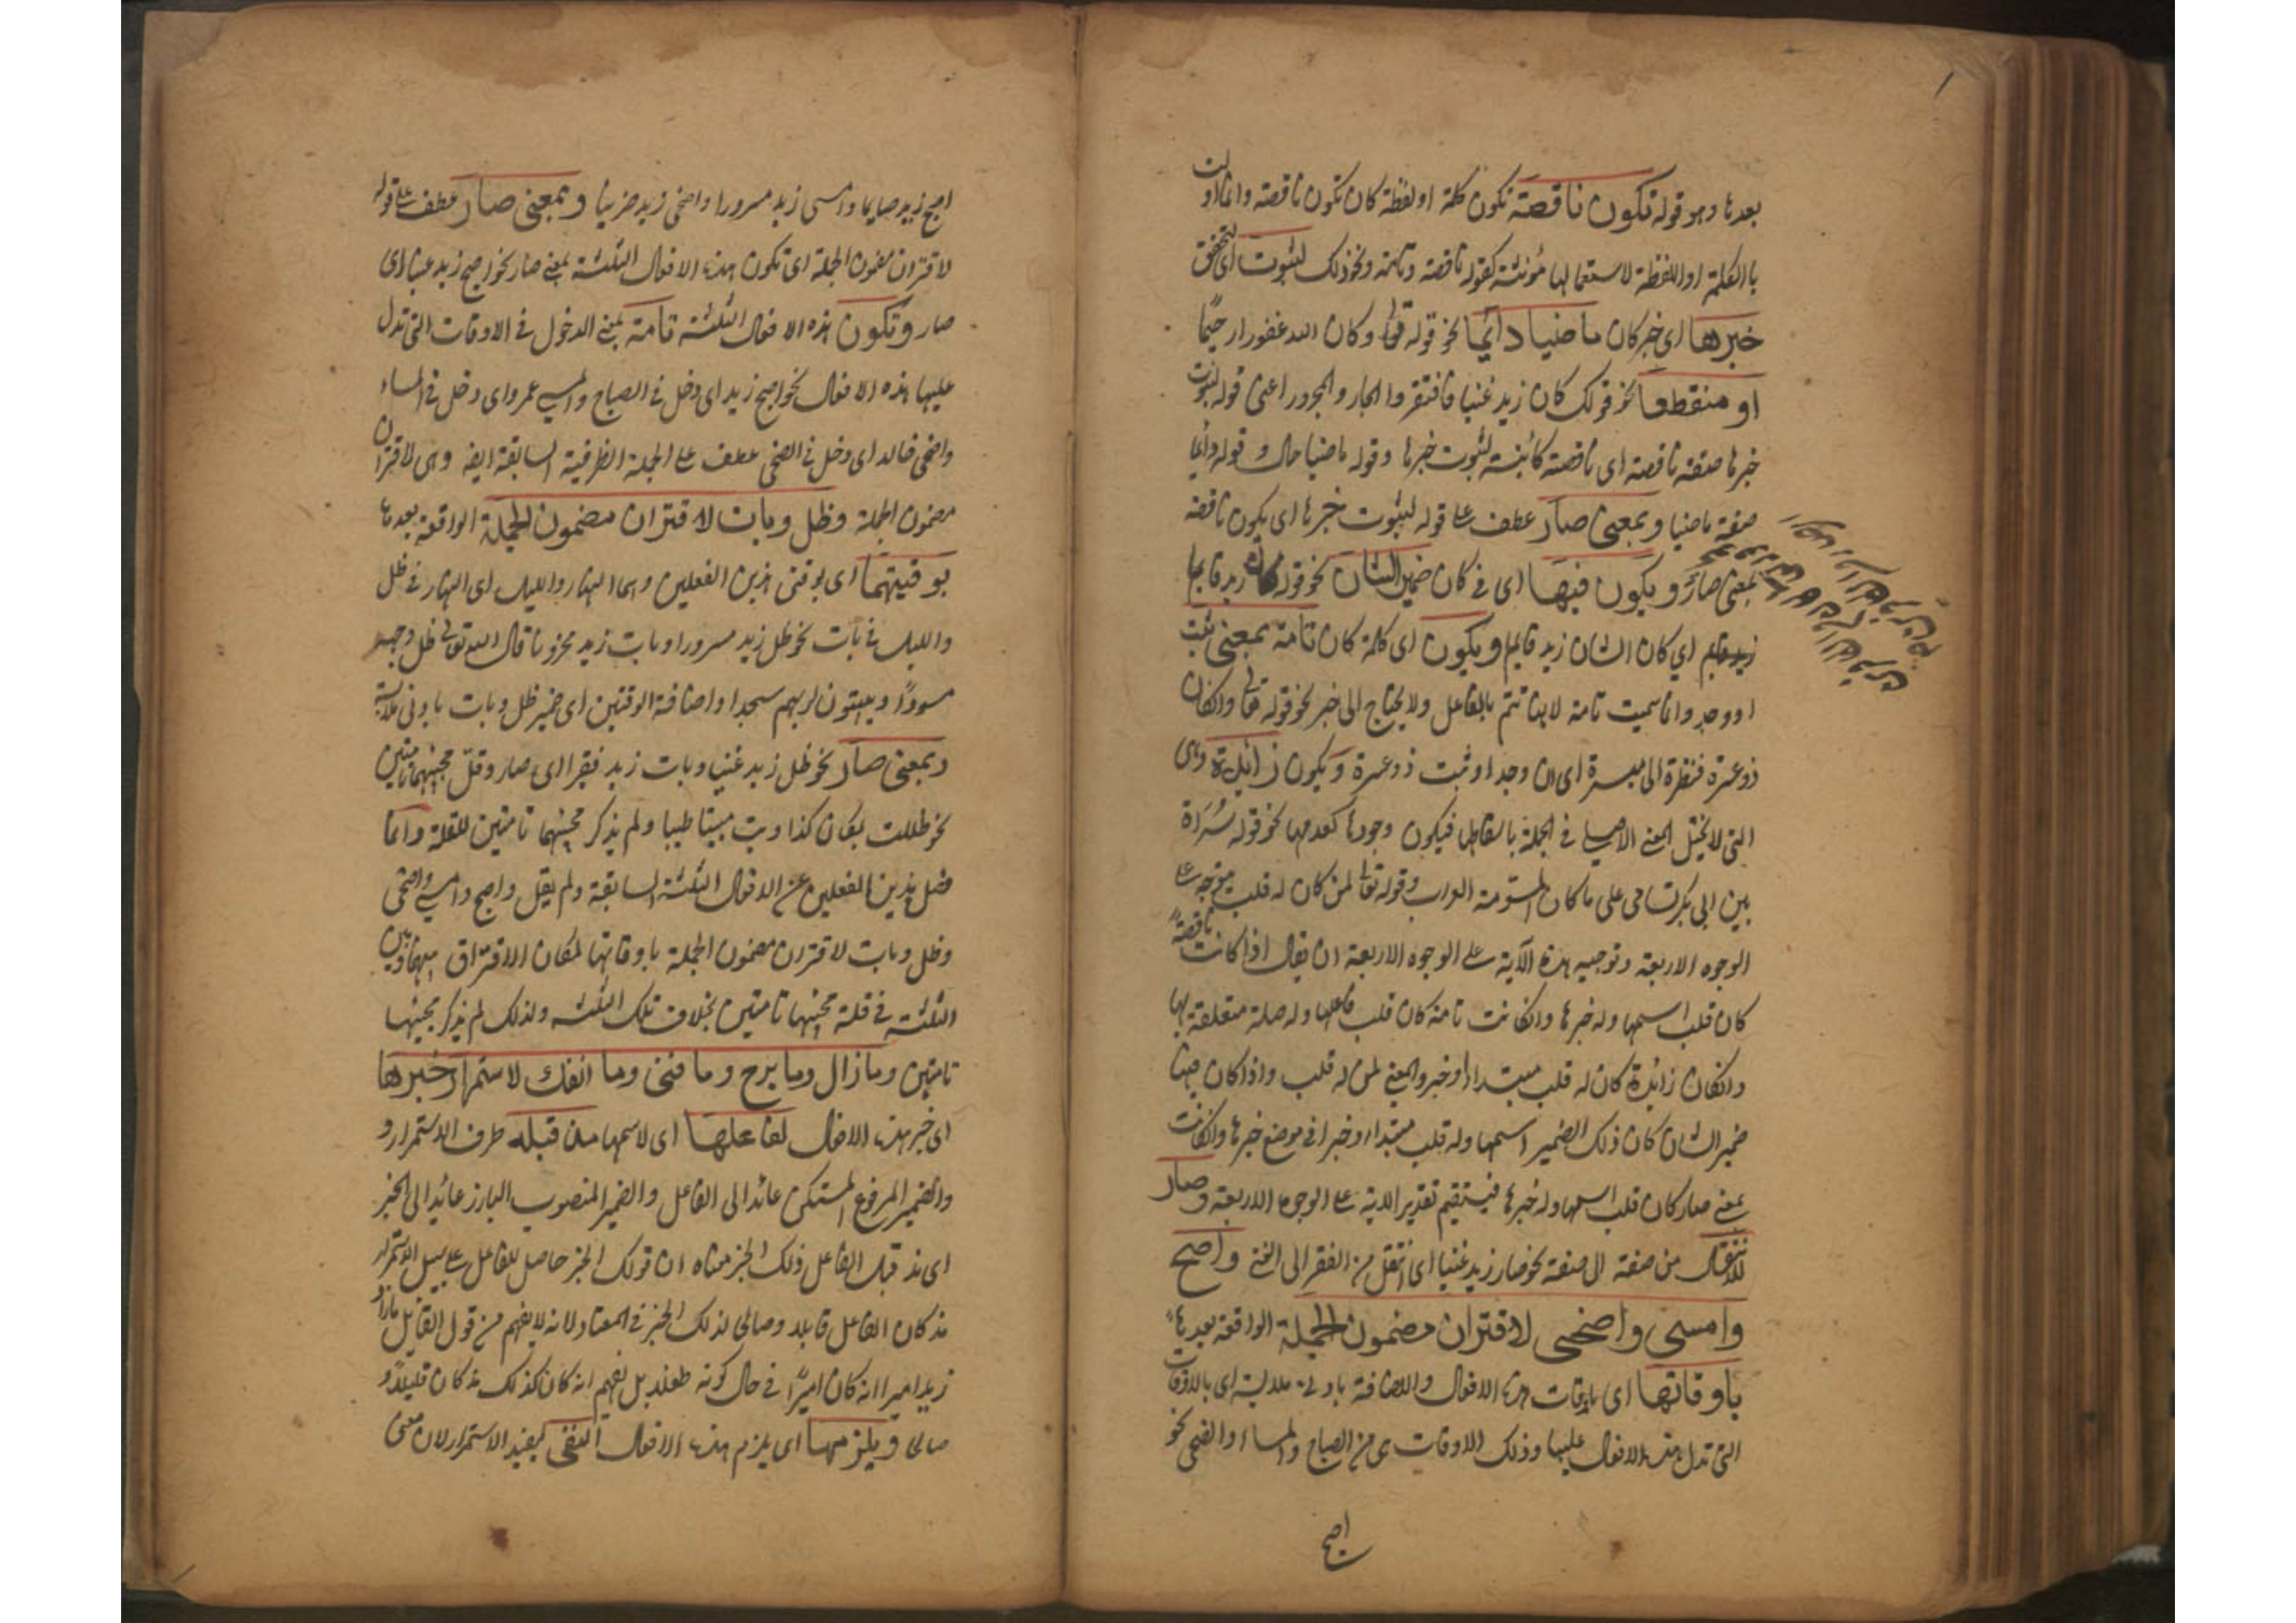 بعدها وهو قوله تكون ناقصة تكون كلمة او لفظة كان تكون ناقصة وانما اولت
باالكلمة او اللفظة لاستعمالها مؤنثة كقوله ناقصة وتامة ونحو ذلك لثبوت اى لتحقق
خبرها اى خبر كان ماضيا دائما نحو قوله تعالى وكان الله غفورا رحيما
او منقطعا نحو قولك كان زيد غنيا فافتقر والجار والمجرور اعنى قوله لثبوت
خبرها صفة ناقصة اى ناقصة كائنة لثبوت خبرها وقوله ماضيا حال و قوله دائما
صفة ماضيا وبمعنى صار عطف على قوله لثبوت خبرها اى يكون ناقصة
بمعنى صار و يكون فيها اى فى كان ضمير الشان نحو قوله كان زيد قايما
زيد قايم اي كان الشان زيد قايم ويكون اى كلمة كان تامة بمعنى ثبت
او وجد وانما سميت تامة لانها تتم بالفاعل ولا يحتاج الى خبر نحو قوله تعالى وانكان
ذو عسرة فنظرة الى ميسرة اى ان وجد او ثبت ذو عسرة ويكون زائدة وهى
التى لا يختل المعنى الاصلى فى الجملة باسقاطها فيكون وجودها كعدمها نحو قوله سُرَاة
بين ابى بكر تسامى على ما كان المسومة العراب وقوله تعالى لمن كان له قلب متوجه على
الوجوه الاربعة وتوجيه هذه الآية على الوجوه الاربعة ان يقال اذا كانت ناقصة
كان قلب اسمها وله خبرها وانكانت تامة كان قلب فاعلها وله صلة متعلقة بها
وانكان زائدة كان له قلب مبتداء وخبر والمعنى لمن له قلب واذا كان فيها
ضمير الشان كان ذلك الضمير اسمها وله قلب مبتداء وخبرا فى موضع خبرها وانكانت
بمعنى صار كان قلب اسمها وله خبرها فيستقيم تقدير الاية على الوجوه الاربعة وصار
للانتقال من صفة الى صفة نحو صار زيد غنيا اى انتقل من الفقر الى الغنى واصبح
وامسى واضحى لاقتران مضمون الجملة الواقعة بعدها
باوقاتها اى باوقات هذه الافعال والاضافة بادنى ملابسة اى بالاوقات
التى تدل هذه الافعال عليها وذلك الاوقات هى من الصباح والمساء والضحى نحو
اصبح
اصبح زيد صايما وامسى زيد مسرورا واضحى زيد حزينا وبمعنى صار عطف على قوله
لاقتران مضمون الجملة اى تكون هذه الافعال الثلثة بمعنى صار نحو اصبح زيد غنيا اى
صار وتكون هذه الافعال الثلثة تامة بمعنى الدخول فى الاوقات التى تدل
عليها هذه الافعال نحو اصبح زيد اى دخل فى الصباح وامسى عمرو اى دخل فى المساء
واضحى خالد اى دخل فى الضحى عطف على الجملة الظرفية السابقة ايضا وهى لاقتران
مضمون الجملة وظل وبات لاقتران مضمون الجملة الواقعة بعدها
بوقتيهما اى بوقتى هذين الفعلين وهما النهار والليل اى النهار فى ظل
والليل فى بات نحو ظل زيد مسرورا وبات زيد محزونا قال الله تعالى ظل وجهه
مسودًا ويبيتون لربهم سجدا واضافة الوقتين اى ضمير ظل وبات بادنى ملابسة
وبمعنى صار نحو ظل زيد غنيا وبات زيد فقيرا اى صار وقلّ مجيئهما تامتين
نحو ظللت بمكان كذا وبت مبيتا طيبا ولم يذكر مجيئهما تامتين للقلة وانما
فصل هذين الفعلين عن الافعال الثلثة السابقة ولم يقل واصبح وامسى واضحى
وظل وبات لاقتران مضمون الجملة باوقاتها لمكان الافتراق بينهما وبين
الثلثة فى قلة مجيئهما تامتين بخلاف تلك الثلثة ولذلك لم يذكر مجيئهما
تامتين ومازال وما برح وما فتئ وما انفك لاستمرار خبرها
اى خبر هذه الافعال لفاعلها اى لاسمها مذ قبله ظرف الاستمرار و
والضمير المرفوع المستكن عائد الى الفاعل والضمير المنصوب البارز عائد الى الخبر
اى مذ قبل الفاعل ذلك الخبر معناه ان قولك الخبر حاصل للفاعل على سبيل الاستمرار
مذ كان الفاعل قابلا وصالحا لذلك الخبر فى المعتاد لانه لا يفهم من قول القائل مازال
زيد اميرا انه كان اميرًا فى حال كونه طفلا بل يفهم انه كان كذلك مذ كان قابلا و
صالحا ويلزمها اى يلزم هذه الافعال النفى ليفيد الاستمرار لان معنى